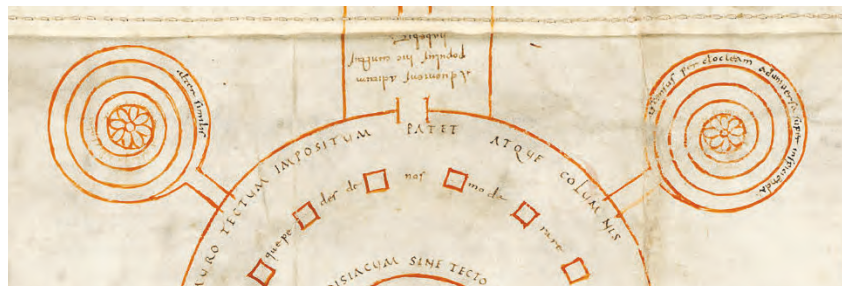 Adueniens aditum
populus hic cunctus
habebit
alter similis
ascensus per clocleam ad uniuersa super inspicienda
MURO TECTUM IMPOSITUM PATET ATQUE COLUMNIS
que pe des de nos mode rare
ISIACUM SINE TECTO